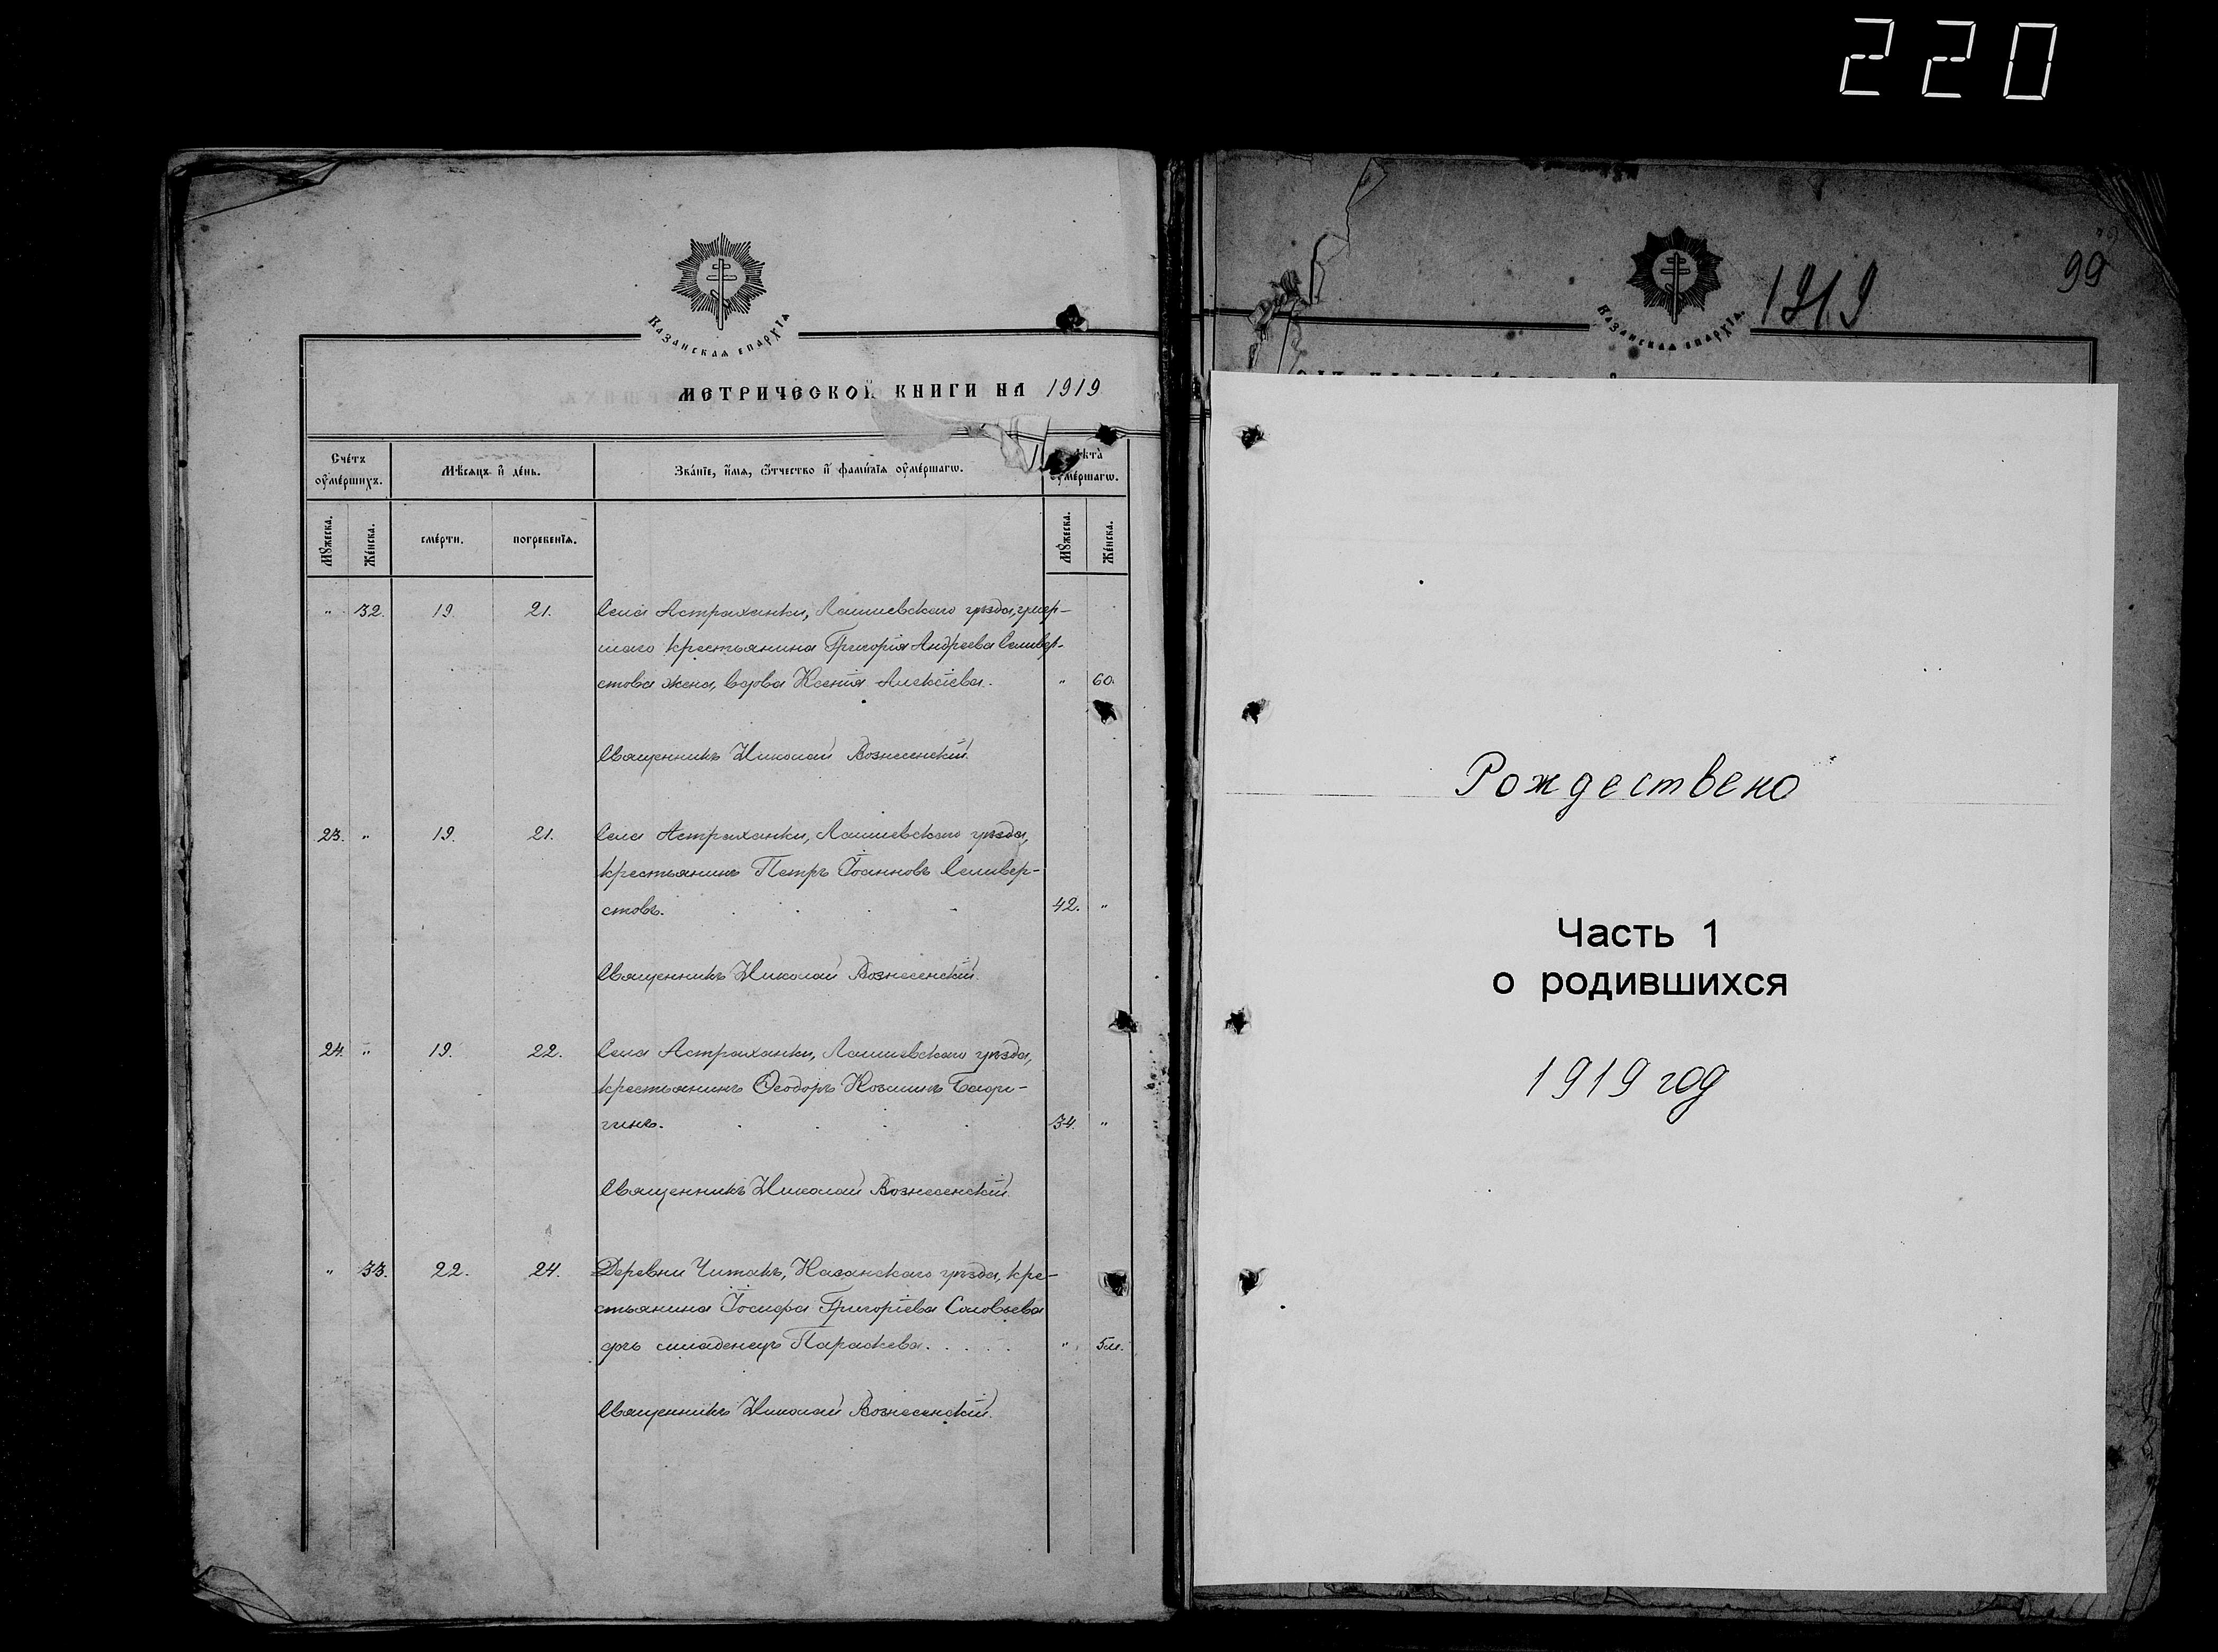 220
Казанская епархїѧ
МЕТРИЧЕСКОЙ КНИГИ НА 1919
Счетъ оумершихъ.
Мѣсяцъ и день.
Званїе, имѧ, отчество и фамилїѧ оумершагѡ.
Лѣта оумершагѡ.
Мужеска.
Женска.
смерти.
погребенїѧ.
Мужеска.
Женска.
" 32. 19. 21. Села Астраханки, Лаишевскаго уѣзда, умер-
шаго крестьянина Григорія Андреева Селивер-
стова жена, вдова Ксенія Алексіева. " 60.
Священникъ Николай Вознесенскій.
23. " 19. 21. Села Астраханки, Лаишевскаго уѣзда,
крестьянинъ Петръ Іоанновъ Селивер-
стовъ. 42. "
Священникъ Николай Вознесенскій.
24. " 19. 22. Села Астраханки, Лаишевскаго уѣзда,
крестьянинъ Ѳеодоръ Козминъ
гинъ. 34. "
Священникъ Николай Вознесенскій.
" 33. 22. 24. Деревни Читакъ, Казанскаго уѣзда, кре-
стьянина Іосифа Григоріева Соловьева
дчь младенецъ Параскева. " 5м.
Священникъ Николай Вознесенскій.
Казанская епархїѧ
1919
99
Рождествено
Часть 1
о родившихся
1919 год